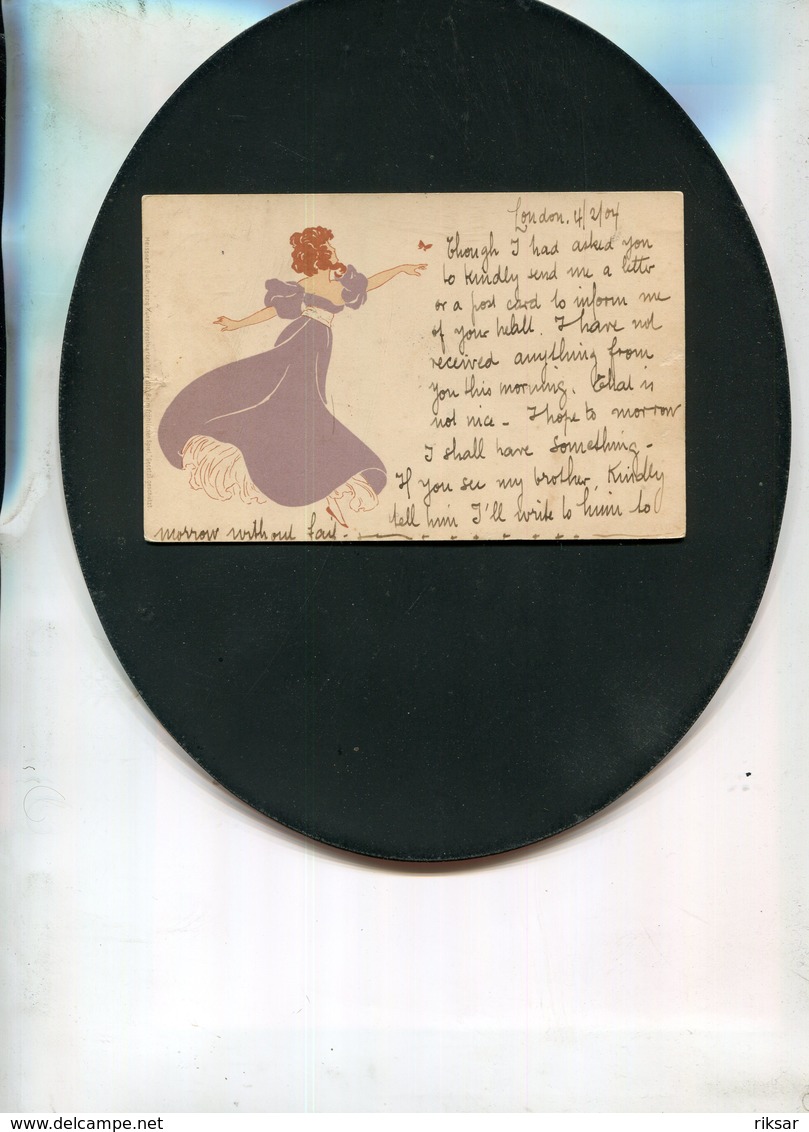 London. 4/2/04
Though I had asked you
to kindly send me a letter
or a post card to inform me
of your helalt. I have not
received anything from
you this morning. That is
not nice - I hope to morrow
I shall have something -
If you see my brother, Kindly
tell him I'll write to him to
morrow without fail -
delcampe.net
riksar